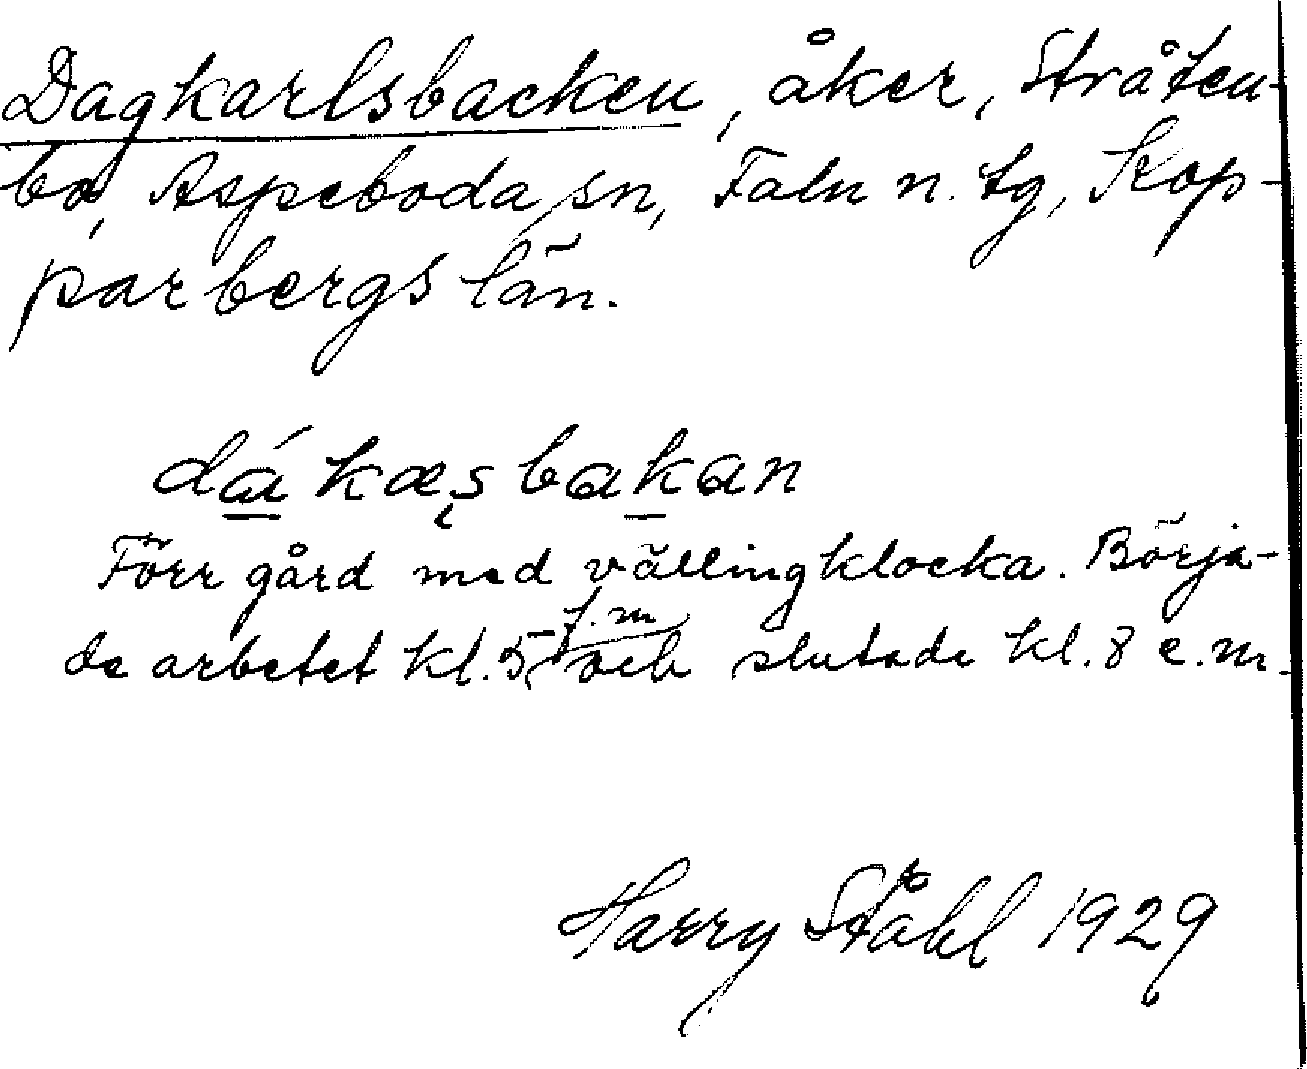 Dagkarlsbacken, åker, Stråten-
bo, Aspeboda sn, Falu n. tg, Kop-
parbergs län.
dá kæs̨bakan
Förr gård med vällingklocka. Börja-
de arbetet kl. 5 f.m och slutade kl. 8 e.m.
Harry Ståhl 1929